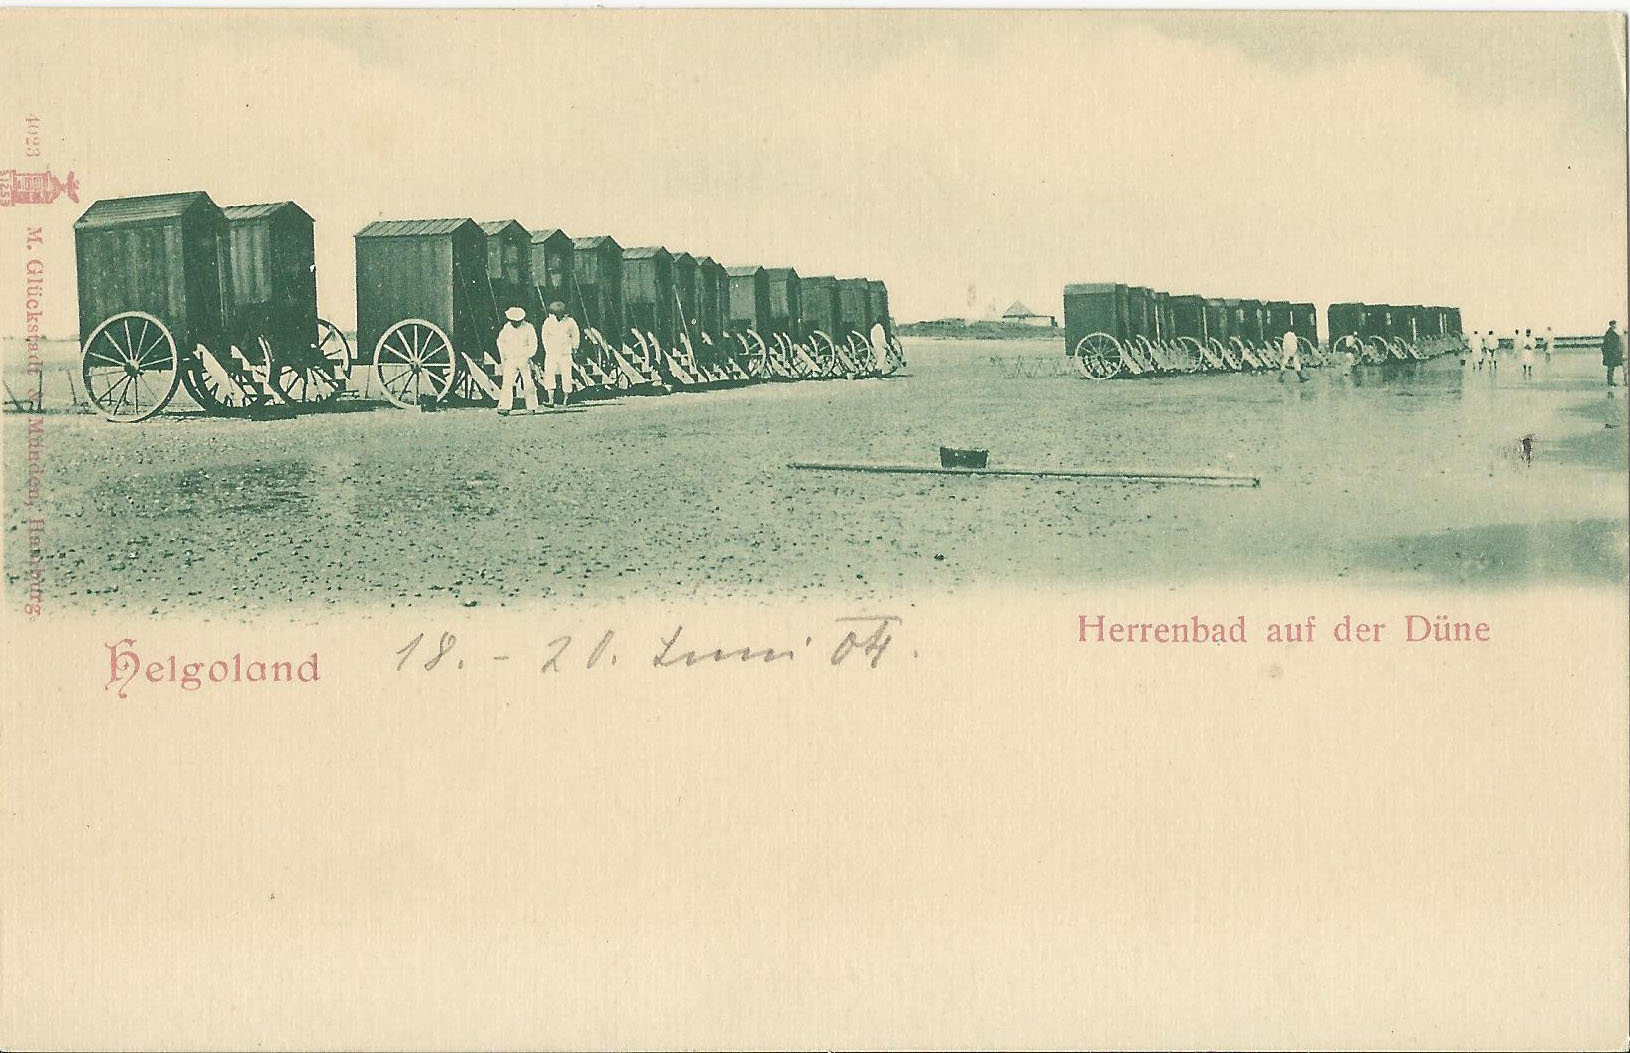 4023
31253
M. Glückstadt & Münden, Hamburg
Helgoland
18. - 20. Juni 04.
Herrenbad auf der Düne